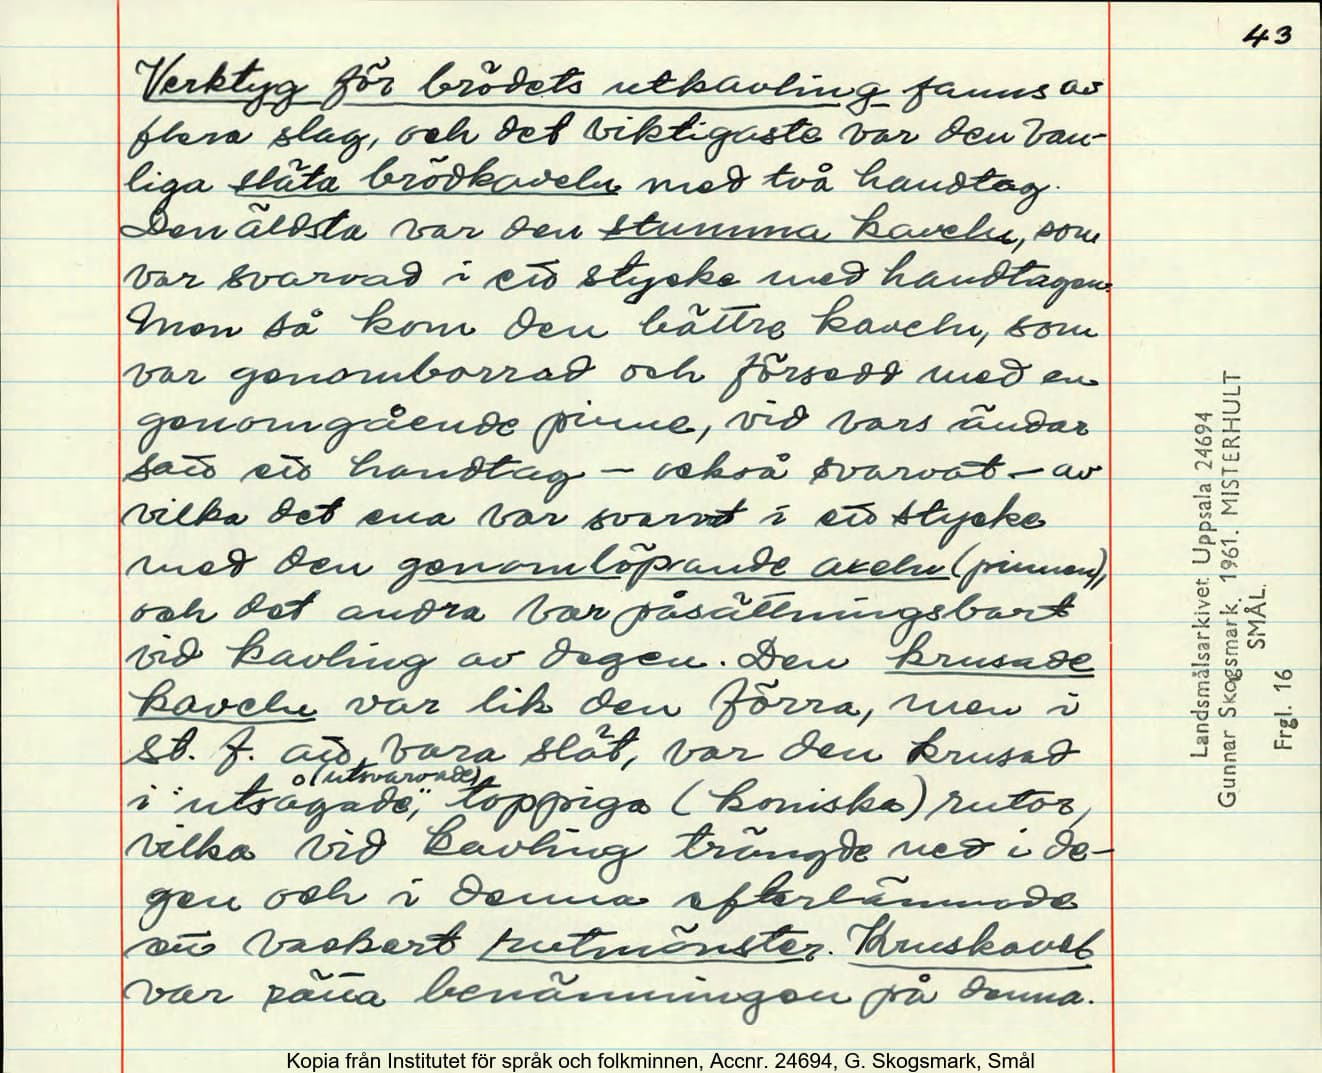 43
Verktyg för brödets utkavling fanns av
flera slag, och det viktigaste var den van-
liga släta brödkaveln med två handtag.
Den äldsta var den stumma kaveln, som
var svarvad i ett stycke med handtagen.
Men så kom den bättre kaveln, som
var genomborrad och försedd med en
genomgående pinne, vid vars ändar
satt ett handtag – också svarvat – av
vilka det ena var svarvat i ett stycke
med den genomlöpande axeln (pinnen),
och det andra var påsättningsbart
vid kavling av degen. Den krusade
kaveln var lik den förra, men i
st. f. att vara slät, var den krusad
(utsvarvade)
i "utsågade", toppiga (koniska) rutor,
vilka vid kavling trängde ned i de-
gen och i denna efterlämnade
ett vackert rutmönster. Kruskavel
var rätta benämningen på denna.
Landsmålsarkivet Uppsala 24694
Gunnar Skogsmark. 1961. MISTERHULT
SMÅL.
Frgl. 16
Kopia från Institutet för språk och folkminnen, Accnr. 24694, G. Skogsmark, Smål